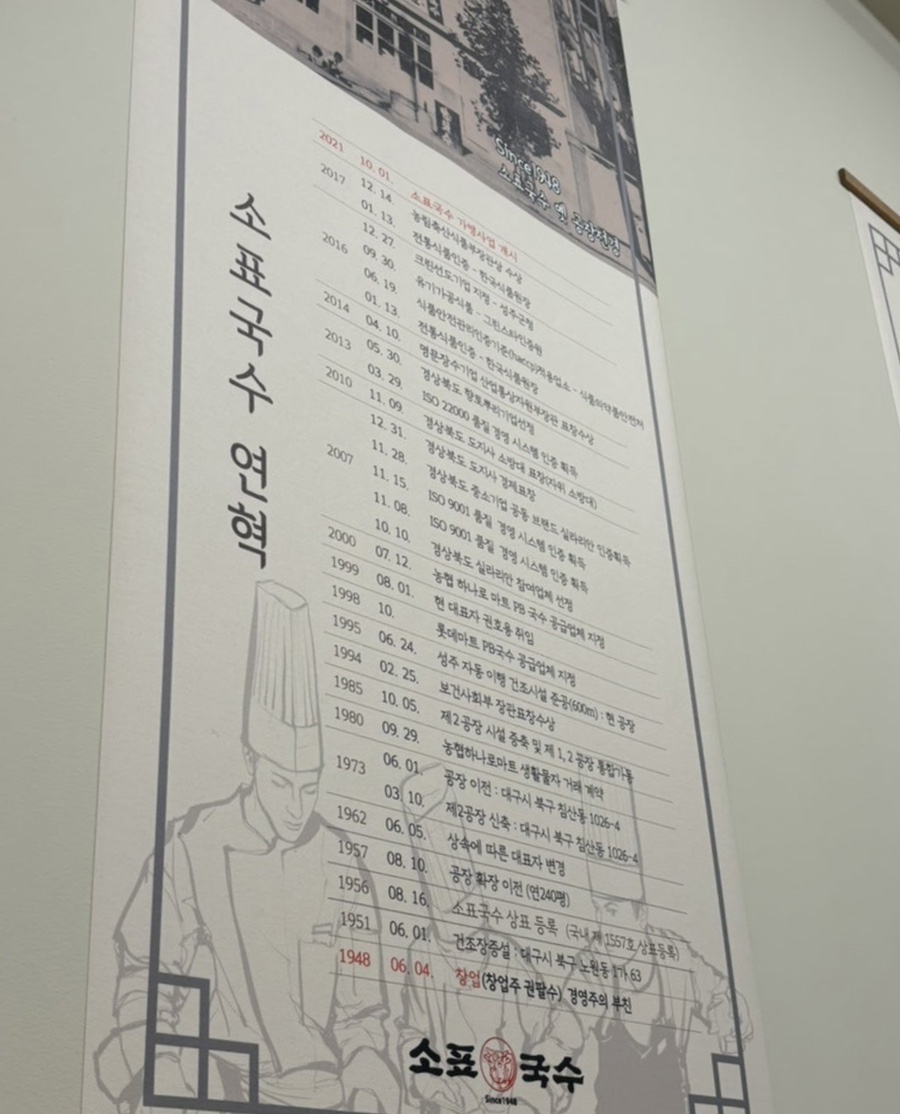 Since1948
소표국수 옛 공장전경
소표국수 연혁
2021 10. 01. 소표국수 가맹사업 개시
2017 12. 14. 농림축산식품부장관상 수상
01. 13. 전통식품인증 - 한국식품원장
12. 27. 크린선도기업 지정 - 성주군청
2016 09. 30. 유기가공식품 - 그린스타인증원
06. 19. 식품안전관리인증기준(haccp)적용업소 - 식품의약품안전처
01. 13. 전통식품인증 - 한국식품원장
2014 04. 10. 명문장수기업 산업통상자원부장관 표창수상
2013 05. 30. 경상북도 향토뿌리기업선정
03. 29. ISO 22000 품질 경영 시스템 인증 획득
2010 11. 09. 경상북도 도지사 소방대 표창(자위 소방대)
12. 31. 경상북도 도지사 경제표창
11. 28. 경상북도 중소기업 공동 브랜드 실라리안 인증획득
2007 11. 15. ISO 9001 품질 경영 시스템 인증 획득
11. 08. ISO 9001 품질 경영 시스템 인증 획득
10. 10. 경상북도 실라리안 참여업체 선정
2000 07. 12. 농협 하나로 마트 PB 국수 공급업체 지정
1999 08. 01. 현 대표자 권호용 취임
1998 10. 롯데마트 PB국수 공급업체 지정
1995 06. 24. 성주 자동 이행 건조시설 준공(600m) : 현 공장
1994 02. 25. 보건사회부 장관표창수상
1985 10. 05. 제2공장 시설 증축 및 제 1, 2 공장 통합가동
1980 09. 29. 농협하나로마트 생활물자 거래 계약
1973 06. 01. 공장 이전 : 대구시 북구 침산동 1026-4
03. 10. 제2공장 신축 : 대구시 북구 침산동 1026-4
1962 06. 05. 상속에 따른 대표자 변경
1957 08. 10. 공장 확장 이전 (연240평)
1956 08. 16. 소표국수 상표 등록 (국내 제 1557호 상표등록)
1951 06. 01. 건조장증설 : 대구시 북구 노원동 1가 63
1948 06. 04. 창업(창업주 권팔수) 경영주의 부친
소표 국수
Since1948